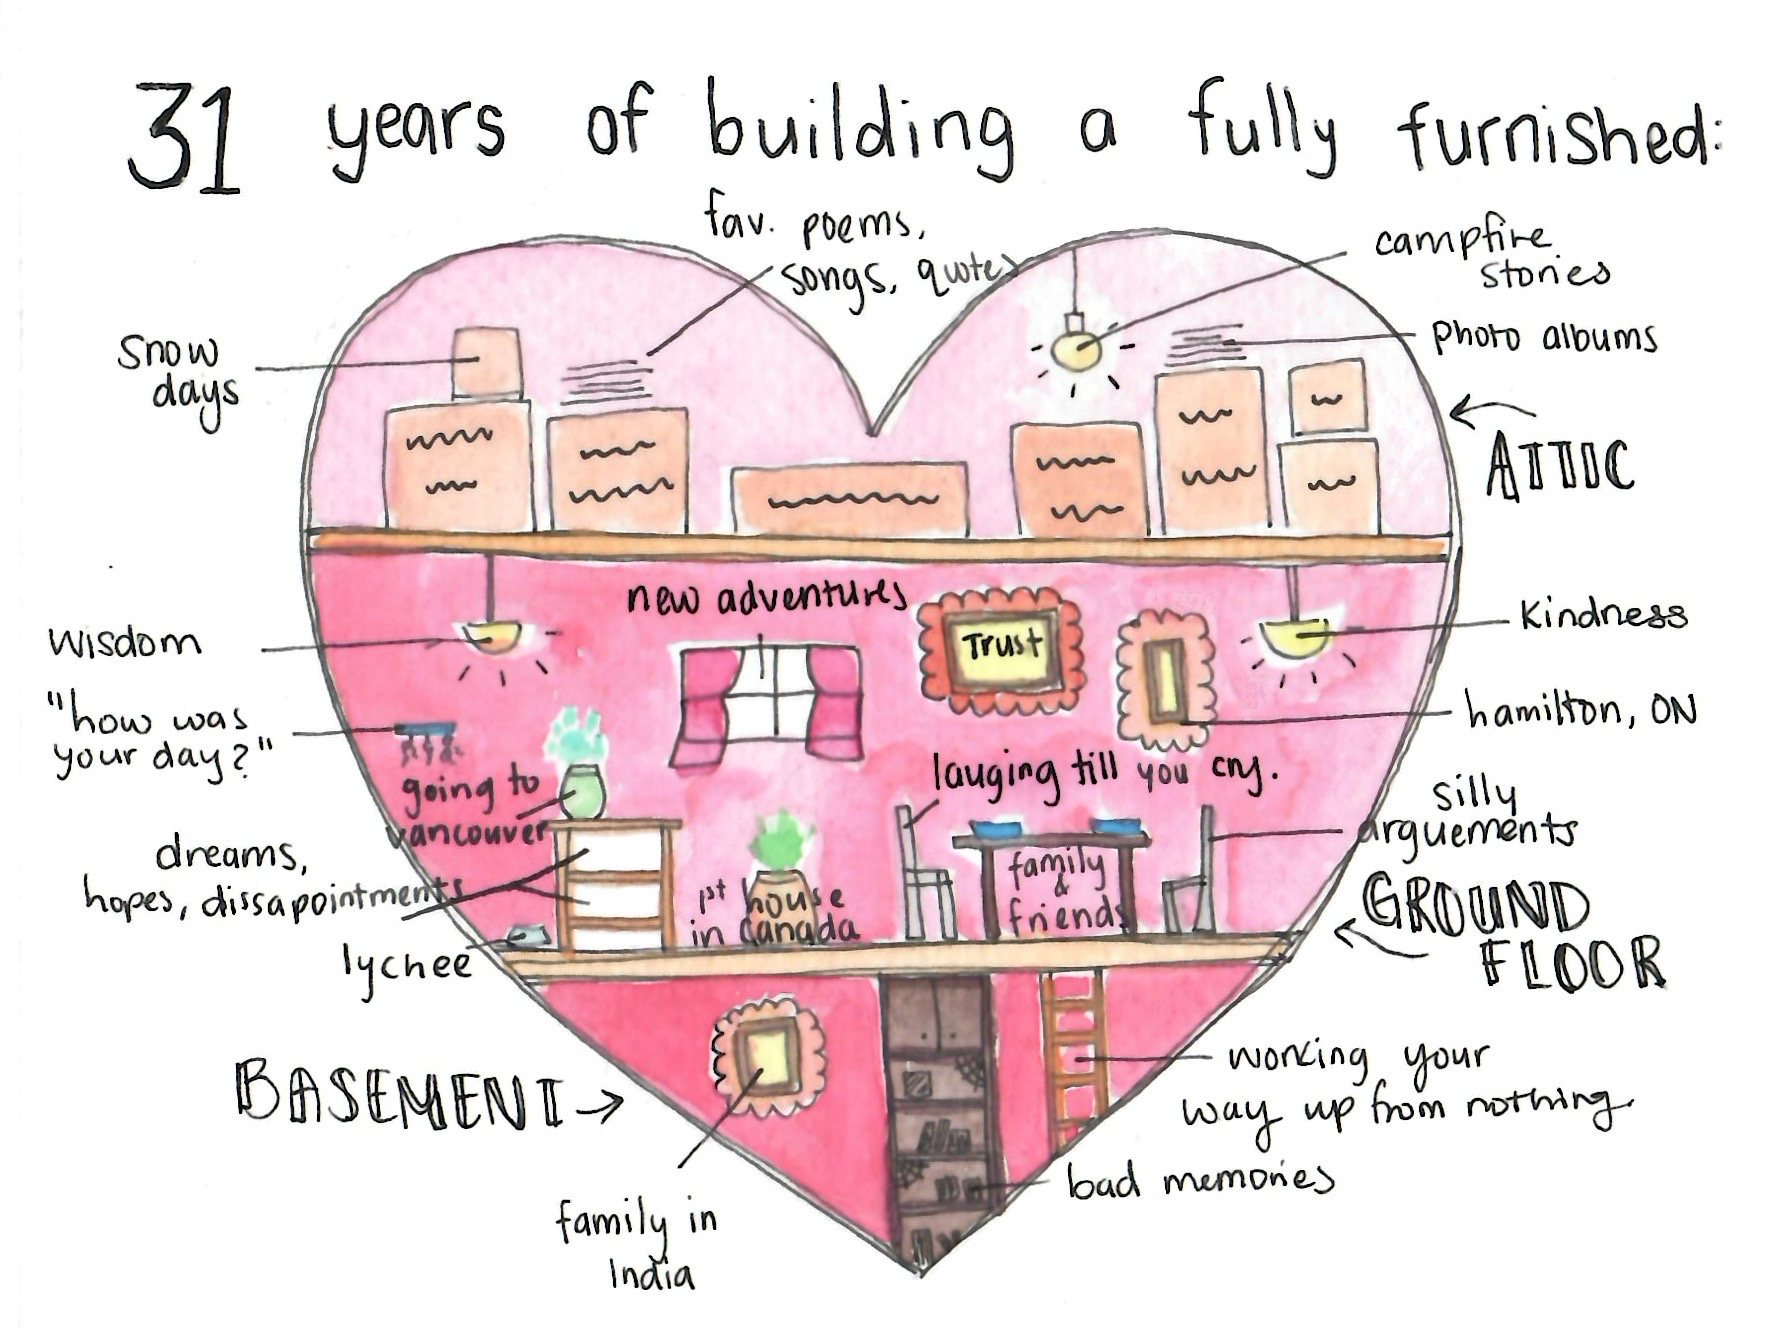 31 years of building a fully furnished:
fav. poems,
songs, quotes
campfire
stories
photo albums
snow
days
ATTIC
new adventures
Trust
wisdom
kindness
"how was
your day?"
hamilton, ON
going to
vancouver
lauging till you cry.
silly
arguements
dreams,
hopes, dissapointments
1st house
in Canada
family
&
friends
GROUND
FLOOR
lychee
BASEMENT
working your
way up from nothing.
bad memories
family in
India